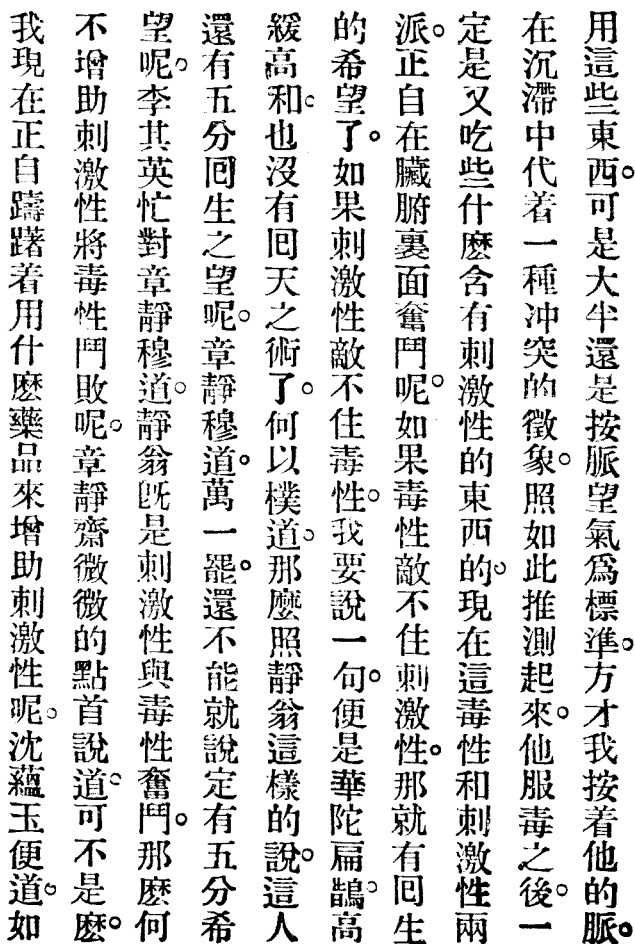 用這些東西。可是大半還是按脈望氣爲標準。方才我按着他的脈。
在沉滯中代着一種冲突的徵象。照如此推測起來。他服毒之後。一
定是又吃些什麽含有刺激性的東西的。現在這毒性和刺激性兩
派。正自在臟腑裏面奮鬥呢。如果毒性敵不住刺激性。那就有囘生
的希望了。如果刺激性敵不住毒性。我要說一句。便是華陀扁鵲。高
緩高和。也沒有囘天之術了。何以樸道。那麽照靜翁這樣的說。這人
還有五分囘生之望呢。章靜穆道。萬一罷。還不能就說定有五分希
望呢。李其英忙對章靜穆道。靜翁旣是刺激性與毒性奮鬥。那麽何
不增助刺激性將毒性鬥敗呢。章靜齋微微的點首說道。可不是麽。
我現在正自躊躇着用什麽藥品來增助刺激性呢。沈蘊玉便道。如